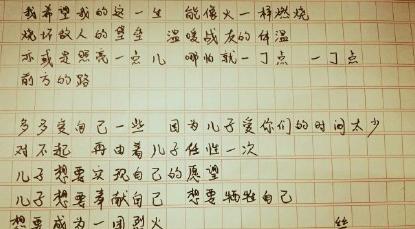 我希望我的这一生 能像火一样燃烧
烧坏敌人的堡垒 温暖战友的体温
亦或是照亮一点儿 哪怕就一丁点 一丁点
前方的路
多多爱自己一些 因为儿子爱你们的时间太少
对不起 再由着儿子任性一次
儿子想要实现自己的愿望
儿子想要奉献自己 想要牺牲自己
想要成为一团烈火